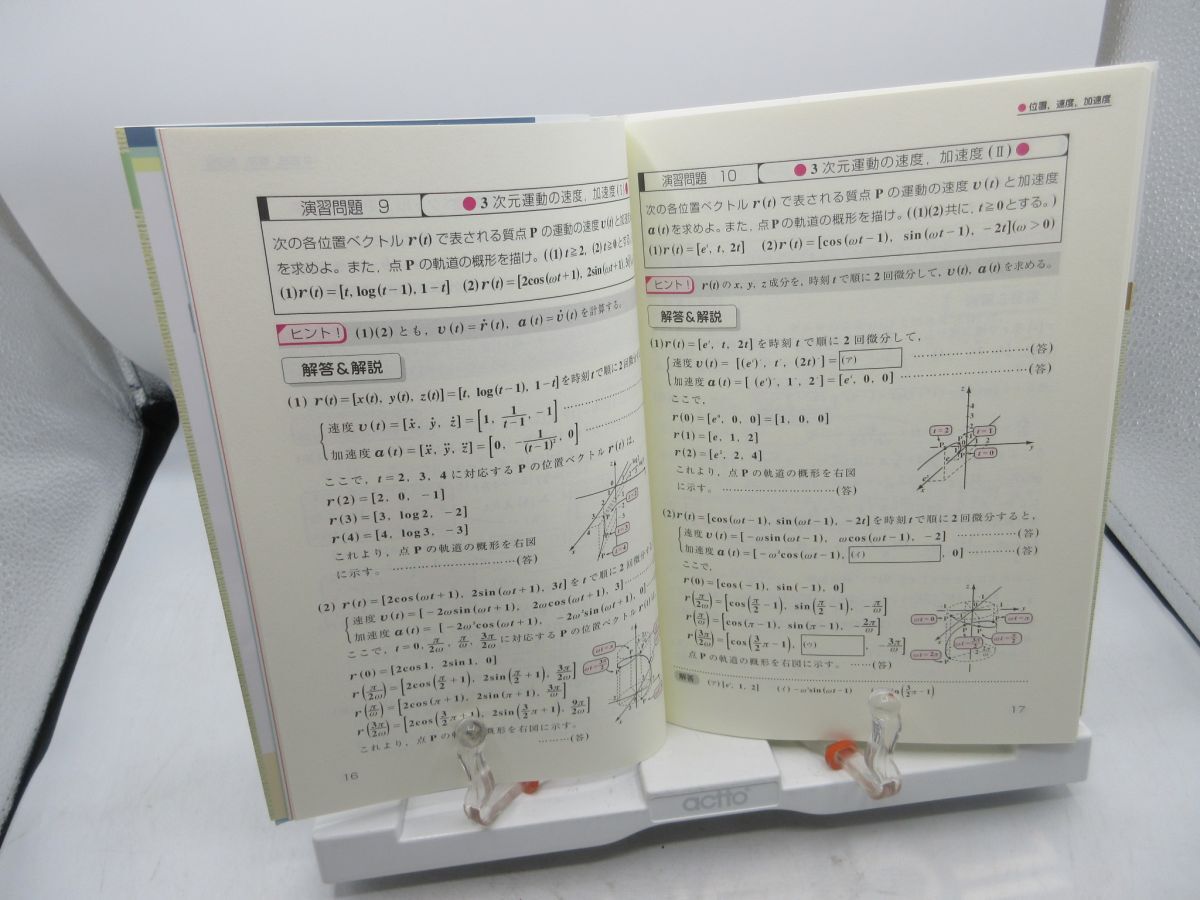 演習問題 9 ●3次元運動の速度，加速度(Ⅰ)
次の各位置ベクトル r(t) で表される質点 P の運動の速度 v(t) と加速度
を求めよ。また，点 P の軌道の概形を描け。((1) t≧2, (2) t≧0とする
(1) r(t)=[t, log(t-1), 1-t] (2) r(t)=[2cos(ωt+1), 2sin(ωt+1), 3
ヒント！ (1)(2)とも，v(t)=ṙ(t)，a(t)=v̇(t)を計算する。
解答&解説
(1) r(t)=[x(t), y(t), z(t)]=[t, log(t-1), 1-t]を時刻tで順に2回微分
速度 v(t)=[ẋ, ẏ, ż]=[1, 1/(t-1), -1] ………
加速度 a(t)=[ẍ, ÿ, z̈]=[0, -1/(t-1)², 0] ………
ここで，t=2, 3, 4に対応するPの位置ベクトルr(t)は，
r(2)=[2, 0, -1]
r(3)=[3, log2, -2]
r(4)=[4, log3, -3]
これより，点Pの軌道の概形を右図
に示す。………………………(答)
t=2
t=3
t=4
(2) r(t)=[2cos(ωt+1), 2sin(ωt+1), 3t]をtで順に2回微分して，
速度 v(t)=[-2ωsin(ωt+1), 2ωcos(ωt+1), 3]………
加速度 a(t)=[-2ω²cos(ωt+1), -2ω²sin(ωt+1), 0]
ここで，t=0, π/2ω, π/ω, 3π/2ω に対応するPの位置ベクトル
r(0)=[2cos1, 2sin1, 0]
r(π/2ω)=[2cos(π/2+1), 2sin(π/2+1), 3π/2ω]
r(π/ω)=[2cos(π+1), 2sin(π+1), 3π/ω]
r(3π/2ω)=[2cos(3/2π+1), 2sin(3/2π+1), 9π/2ω]
これより，点Pの 概形を右図に示す。
………(答)
ωt=π
16
●位置，速度，加速度
演習問題 10 ●3次元運動の速度，加速度(Ⅱ)●
次の各位置ベクトル r(t) で表される質点 P の運動の速度 v(t) と加速度
a(t)を求めよ。また，点 P の軌道の概形を描け。((1)(2)共に，t≧0とする。)
(1) r(t)=[eᵗ, t, 2t] (2) r(t)=[cos(ωt-1), sin(ωt-1), -2t](ω>0)
ヒント！ r(t)のx, y, z成分を，時刻tで順に2回微分して，v(t), a(t)を求める。
解答&解説
(1) r(t)=[eᵗ, t, 2t]を時刻tで順に2回微分して，
速度 v(t)=[(eᵗ)˙, t˙, (2t)˙]=(ア) ………………………(答)
加速度 a(t)=[(eᵗ)˙, 1˙, 2˙]=[eᵗ, 0, 0] ………………………(答)
ここで，
r(0)=[e⁰, 0, 0]=[1, 0, 0]
r(1)=[e, 1, 2]
r(2)=[e², 2, 4]
これより，点Pの軌道の概形を右図
に示す。………………………(答)
t=2
t=1
t=0
(2) r(t)=[cos(ωt-1), sin(ωt-1), -2t]を時刻tで順に2回微分すると，
速度 v(t)=[-ωsin(ωt-1), ωcos(ωt-1), -2] ………………(答)
加速度 a(t)=[-ω²cos(ωt-1), (イ), 0] ………………(答)
ここで，
r(0)=[cos(-1), sin(-1), 0]
r(π/2ω)=[cos(π/2-1), sin(π/2-1), -π/ω]
r(π/ω)=[cos(π-1), sin(π-1), -2π/ω]
r(3π/2ω)=[cos(3/2π-1), (ウ), -3π/ω]
点Pの軌道の概形を右図に示す。……(答)
ωt=0
ωt=π
ωt=2π
解答 (ア) [eᵗ, 1, 2] (イ) -ω²sin(ωt-1) sin(3/2π-1)
17
actto